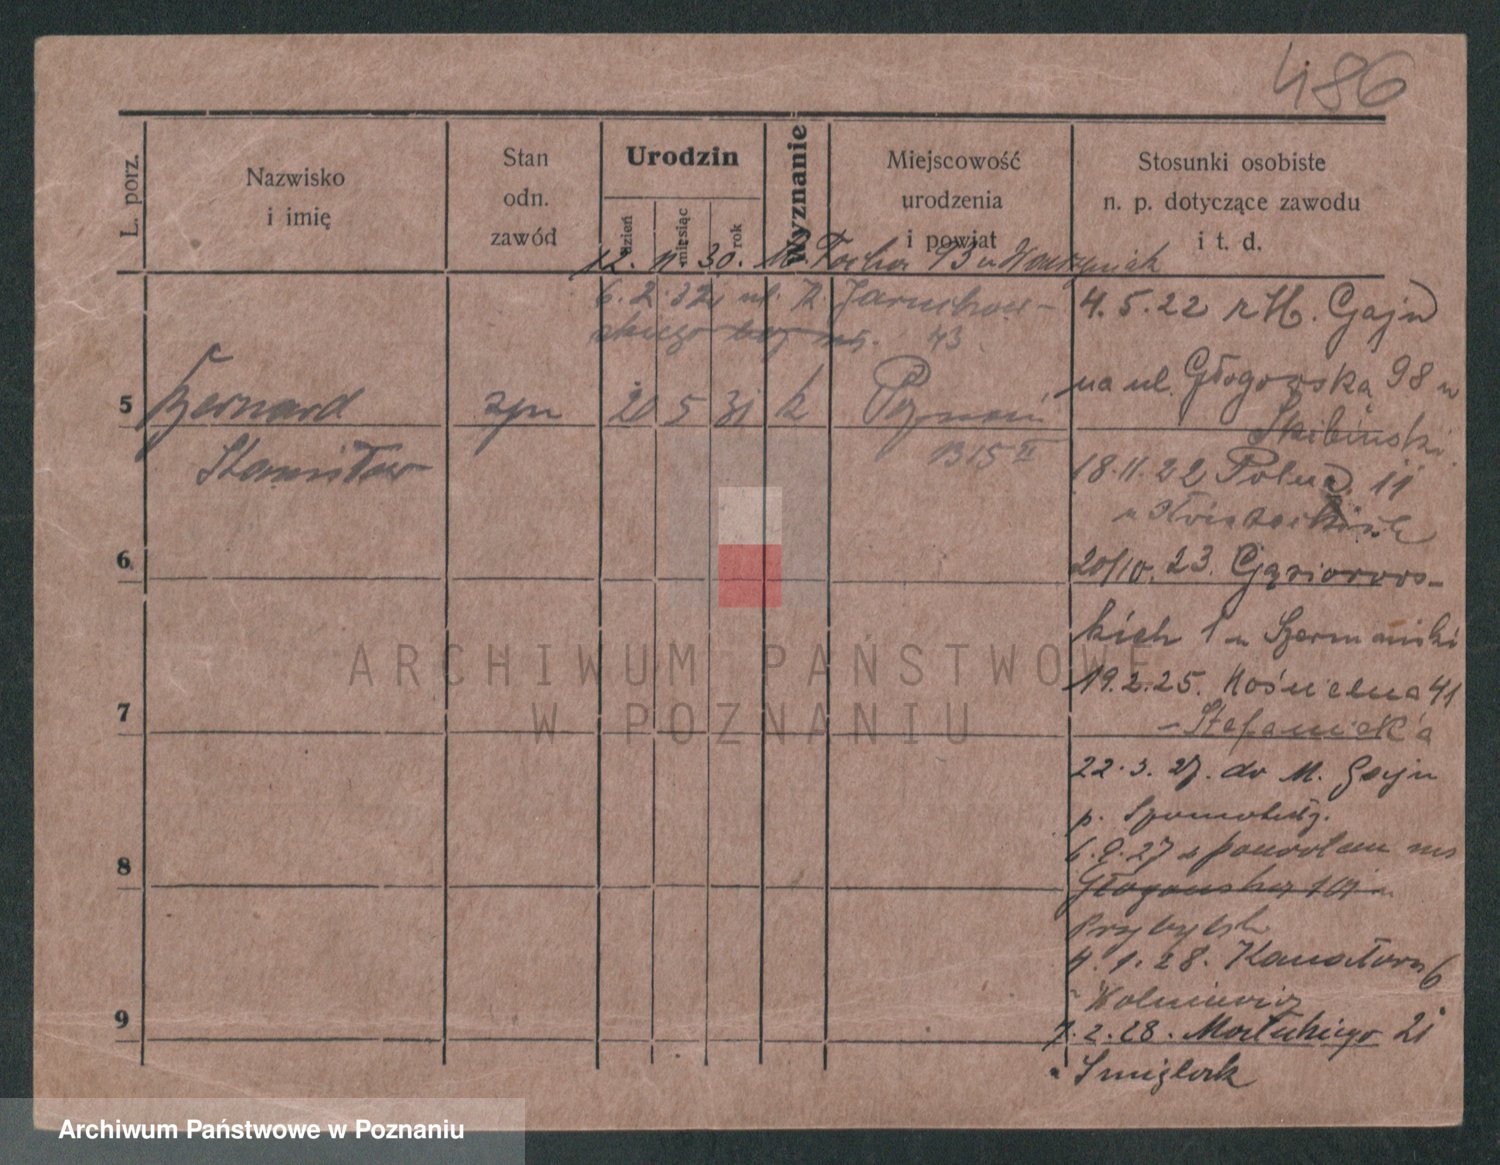 486
L. porz.
Nazwisko
i imię
Stan
odn.
zawód
Urodzin
dzień
miesiąc
rok
Wyznanie
Miejscowość
urodzenia
i powiat
Stosunki osobiste
n. p. dotyczące zawodu
i t. d.
12. 11. 30. M. Focha 13 u Wawrzyniak
6. 2. 32 ul.
43
4. 5. 22 z M. Gaju
na ul. Głogowska 98 u
Skibiński
5 Bernard 20 5 31 k Poznań
Stanisław
1315 II
18. 11. 22 Polna 11
6
20/10. 23. Gąsiorows-
kich 1 u Szermański
19. 2. 25. Kościelna 41
7
- Stefaniak'a
22. 3. 27. do M. Gaju
p.
6. 9. 27 z powrotem na
8
Głogowska
Przybylsk
4. 1. 28. Kanałowa 6
u Wolniewicz
9
7. 2. 28. Małeckiego 21
u Śmiglak
ARCHIWUM PAŃSTWOWE
W POZNANIU
Archiwum Państwowe w Poznaniu